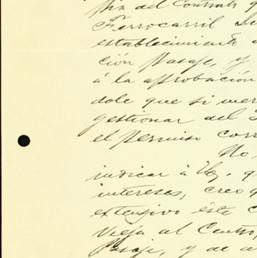 pia del Contrato
Ferrocarril
establecimiento
ción Pasaje, y
á la aprobación
dole que si mere
gestionar del
el permiso corr
No,
indicar á Ud. q
intereses, creo q
extensivo éste C
Vieja al Centro,
Pasaje, y de a